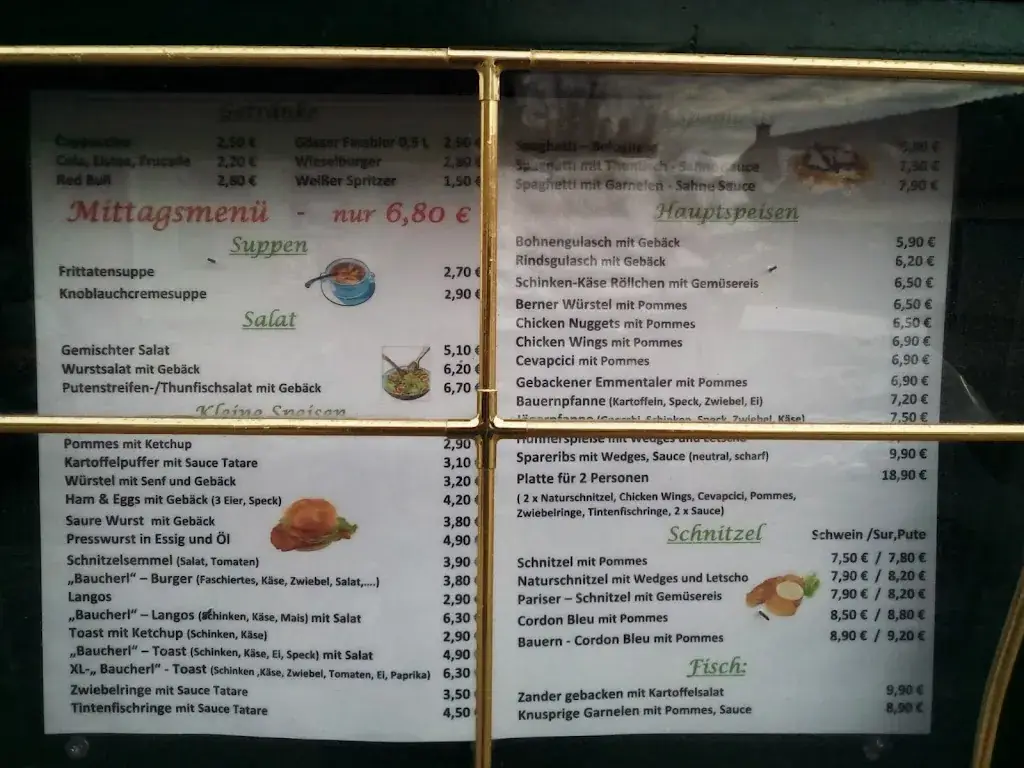 Getränke
Cappuccino 2,50 €
Cola, Eistee, Frucade 2,20 €
Red Bull 2,80 €
Gösser Fassbier 0,5 L 2,90
Wieselburger 2,80
Weißer Spritzer 1,50 €
Mittagsmenü - nur 6,80 €
Suppen
Frittatensuppe 2,70 €
Knoblauchcremesuppe 2,90 €
Salat
Gemischter Salat 5,10 €
Wurstsalat mit Gebäck 6,20 €
Putenstreifen-/Thunfischsalat mit Gebäck 6,70 €
Kleine Speisen
Pommes mit Ketchup 2,90
Kartoffelpuffer mit Sauce Tatare 3,10
Würstel mit Senf und Gebäck 3,20
Ham & Eggs mit Gebäck (3 Eier, Speck) 4,20
Saure Wurst mit Gebäck 3,80
Presswurst in Essig und Öl 4,90
Schnitzelsemmel (Salat, Tomaten) 3,90
„Baucherl“ – Burger (Faschiertes, Käse, Zwiebel, Salat,....) 3,80
Langos 2,90
„Baucherl“ – Langos (Schinken, Käse, Mais) mit Salat 6,30
Toast mit Ketchup (Schinken, Käse) 2,90
„Baucherl“ – Toast (Schinken, Käse, Ei, Speck) mit Salat 4,90
XL-„ Baucherl“ - Toast (Schinken ,Käse, Zwiebel, Tomaten, Ei, Paprika) 6,30
Zwiebelringe mit Sauce Tatare 3,50
Tintenfischringe mit Sauce Tatare 4,50
Spaghetti – Bolognese
Spaghetti mit Thunfisch - Sahne Sauce 7,50 €
Spaghetti mit Garnelen - Sahne Sauce 7,90 €
Hauptspeisen
Bohnengulasch mit Gebäck 5,90 €
Rindsgulasch mit Gebäck 6,20 €
Schinken-Käse Röllchen mit Gemüsereis 6,50 €
Berner Würstel mit Pommes 6,50 €
Chicken Nuggets mit Pommes 6,50 €
Chicken Wings mit Pommes 6,90 €
Cevapcici mit Pommes 6,90 €
Gebackener Emmentaler mit Pommes 6,90 €
Bauernpfanne (Kartoffeln, Speck, Zwiebel, Ei) 7,20 €
Jägerpfanne (Gnocchi, Schinken, Speck, Zwiebel, Käse) 7,50 €
Hühnerspieße mit Wedges und Letscho
Spareribs mit Wedges, Sauce (neutral, scharf) 9,90 €
Platte für 2 Personen 18,90 €
( 2 x Naturschnitzel, Chicken Wings, Cevapcici, Pommes,
Zwiebelringe, Tintenfischringe, 2 x Sauce)
Schnitzel Schwein /Sur,Pute
Schnitzel mit Pommes 7,50 € / 7,80 €
Naturschnitzel mit Wedges und Letscho 7,90 € / 8,20 €
Pariser – Schnitzel mit Gemüsereis 7,90 € / 8,20 €
Cordon Bleu mit Pommes 8,50 € / 8,80 €
Bauern - Cordon Bleu mit Pommes 8,90 € / 9,20 €
Fisch:
Zander gebacken mit Kartoffelsalat 9,90 €
Knusprige Garnelen mit Pommes, Sauce 8,90 €